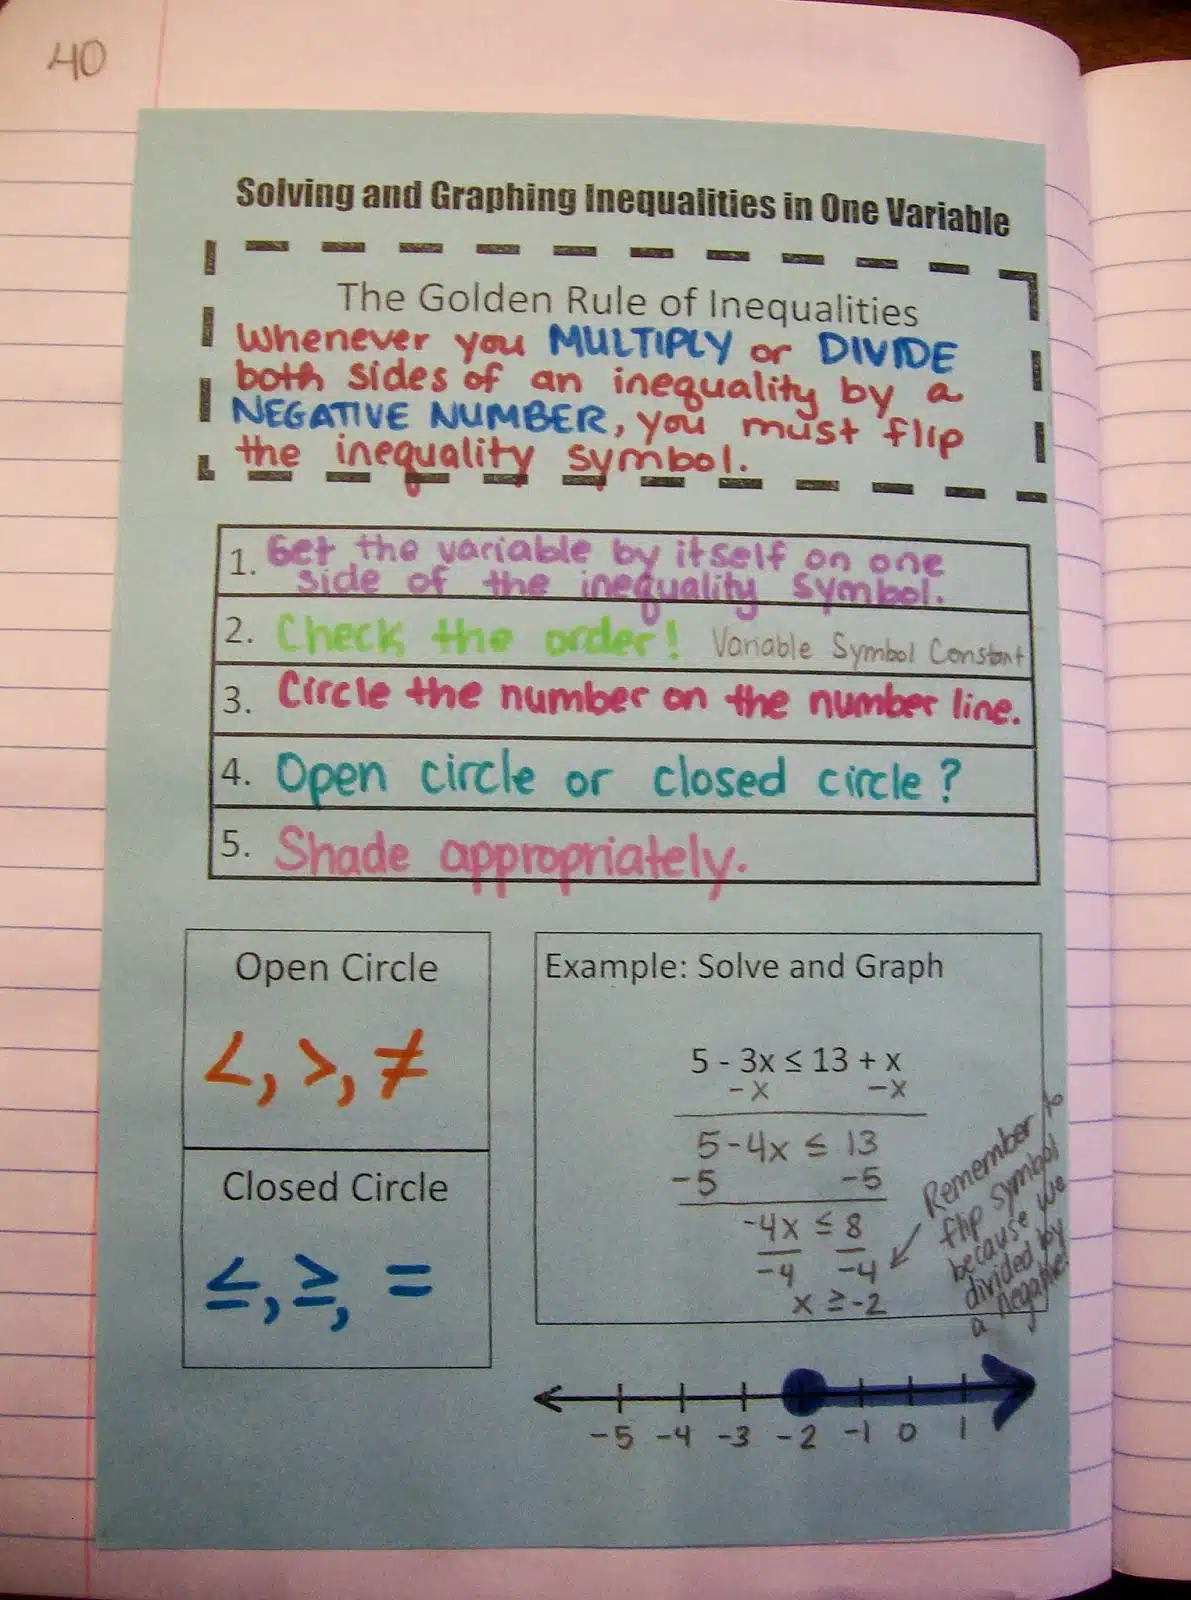 40
Solving and Graphing Inequalities in One Variable
The Golden Rule of Inequalities
Whenever you MULTIPLY or DIVIDE
both sides of an inequality by a
NEGATIVE NUMBER, you must flip
the inequality symbol.
1. Get the variable by itself on one
side of the inequality symbol.
2. Check the order! Variable Symbol Constant
3. Circle the number on the number line.
4. Open circle or closed circle?
5. Shade appropriately.
Open Circle
<, >, ≠
Closed Circle
≤, ≥, =
Example: Solve and Graph
5 - 3x ≤ 13 + x
-x -x
5-4x ≤ 13
-5 -5
-4x ≤ 8
-4 -4
x ≥ -2
Remember to
flip symbol
because we
divided by
a negative!
-5 -4 -3 -2 -1 0 1